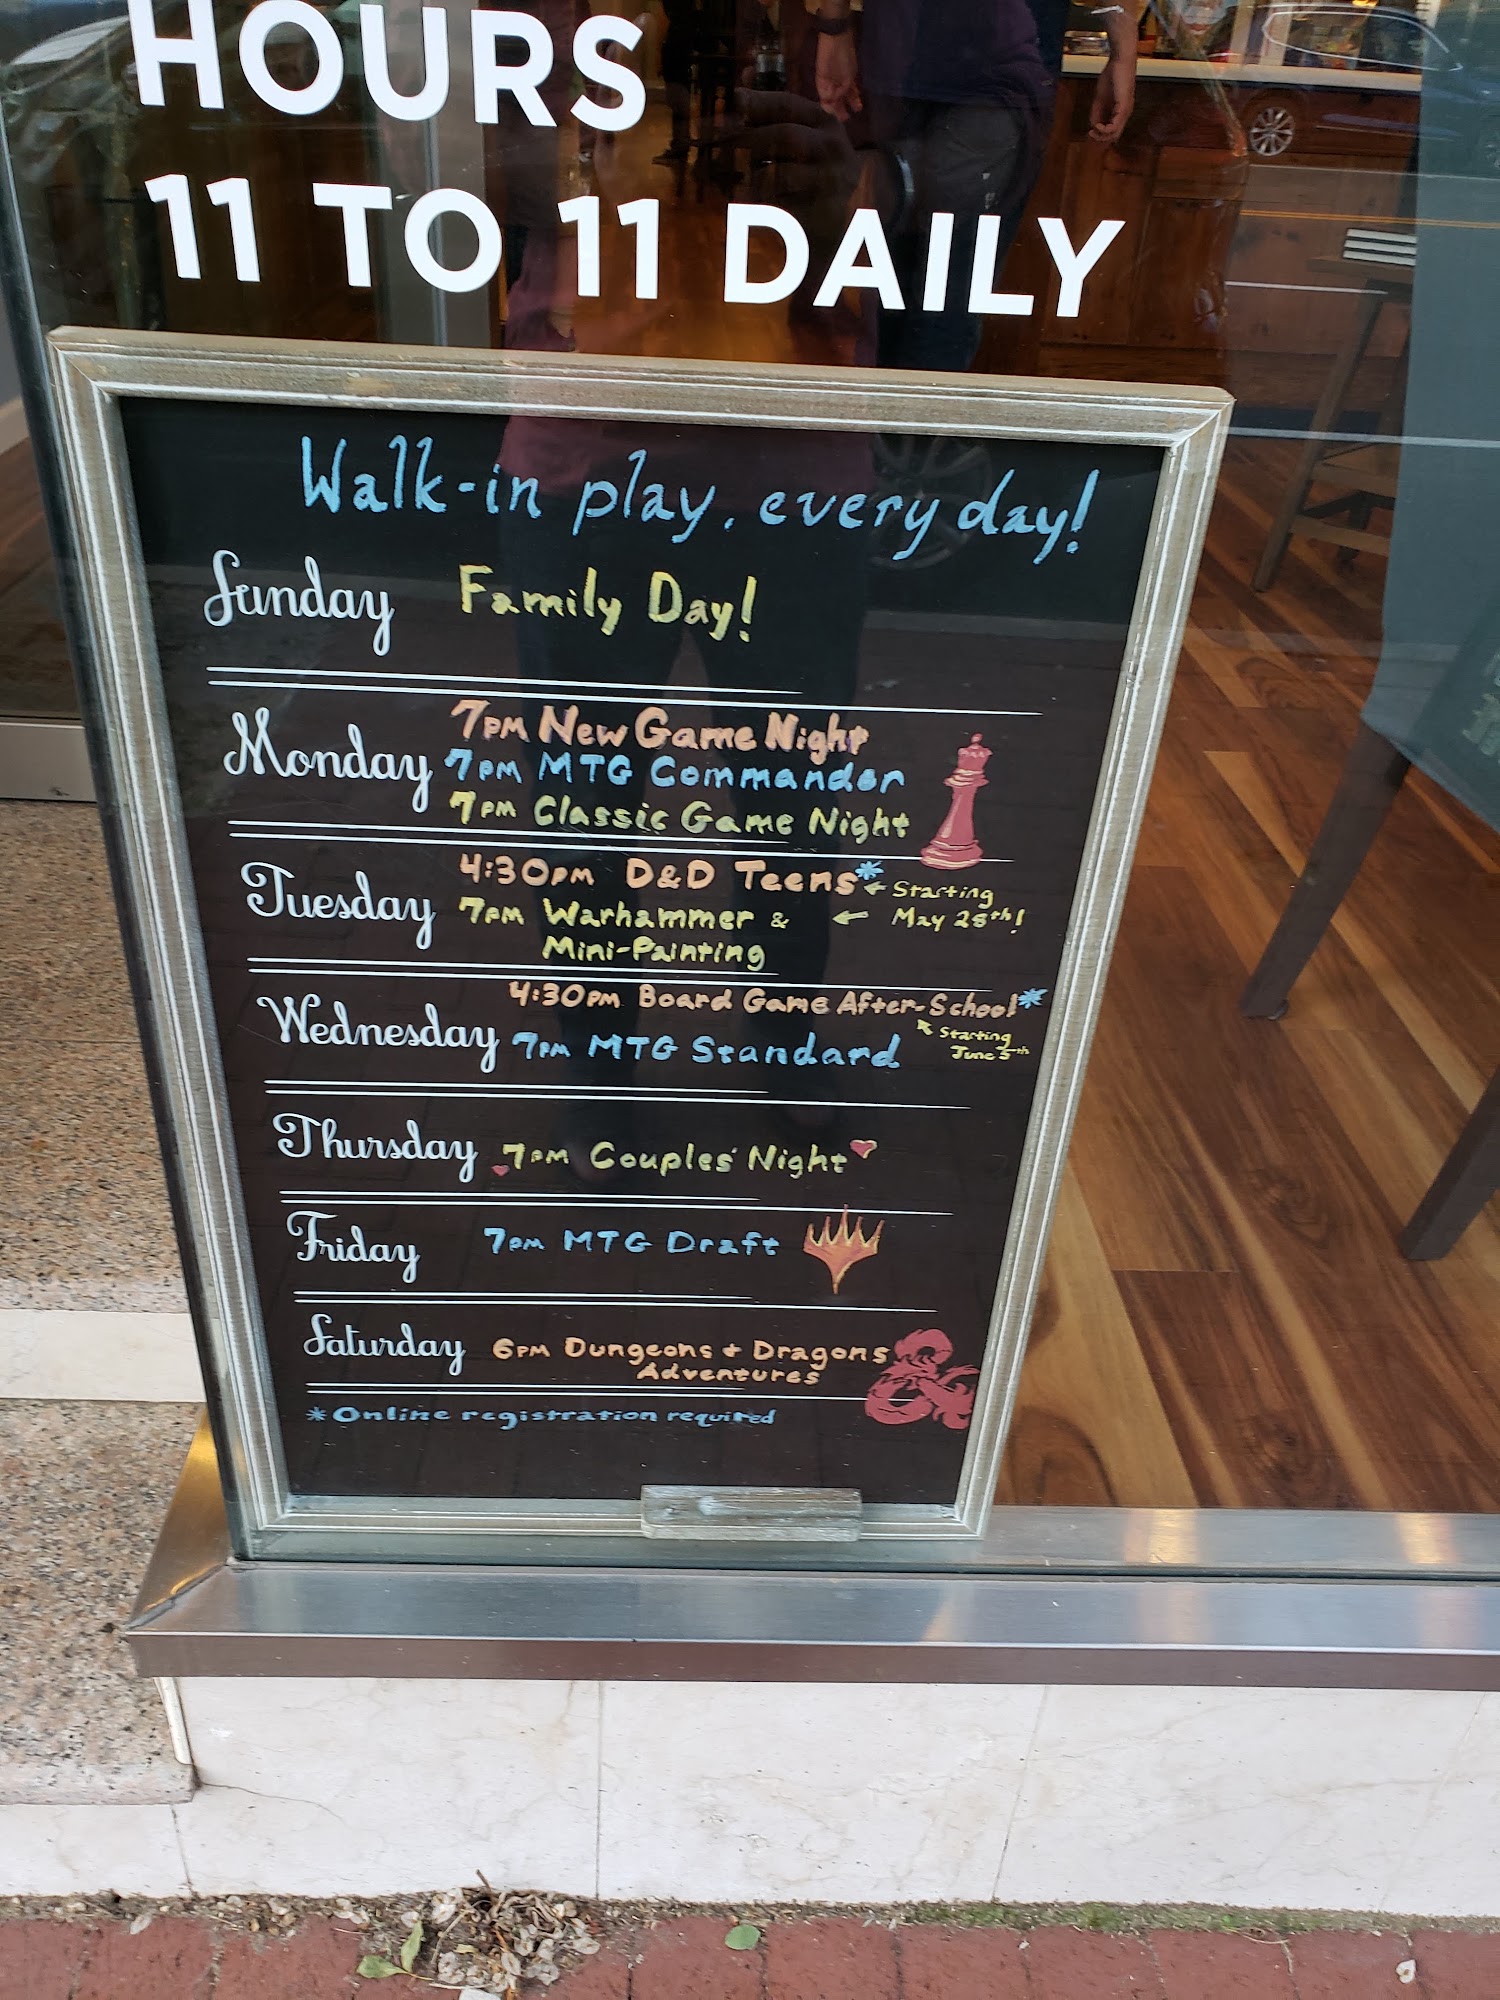 HOURS
11 TO 11 DAILY
Walk-in play, every day!
Sunday Family Day!
Monday 7PM New Game Night
7PM MTG Commander
7PM Classic Game Night
Tuesday 4:30PM D&D Teens* ← Starting
7PM Warhammer & ← May 28th!
Mini-Painting
Wednesday 4:30PM Board Game After-School*
7PM MTG Standard ↖ Starting
June 5th
Thursday 7PM Couples' Night
Friday 7PM MTG Draft
Saturday 6PM Dungeons + Dragons
Adventures
*Online registration required